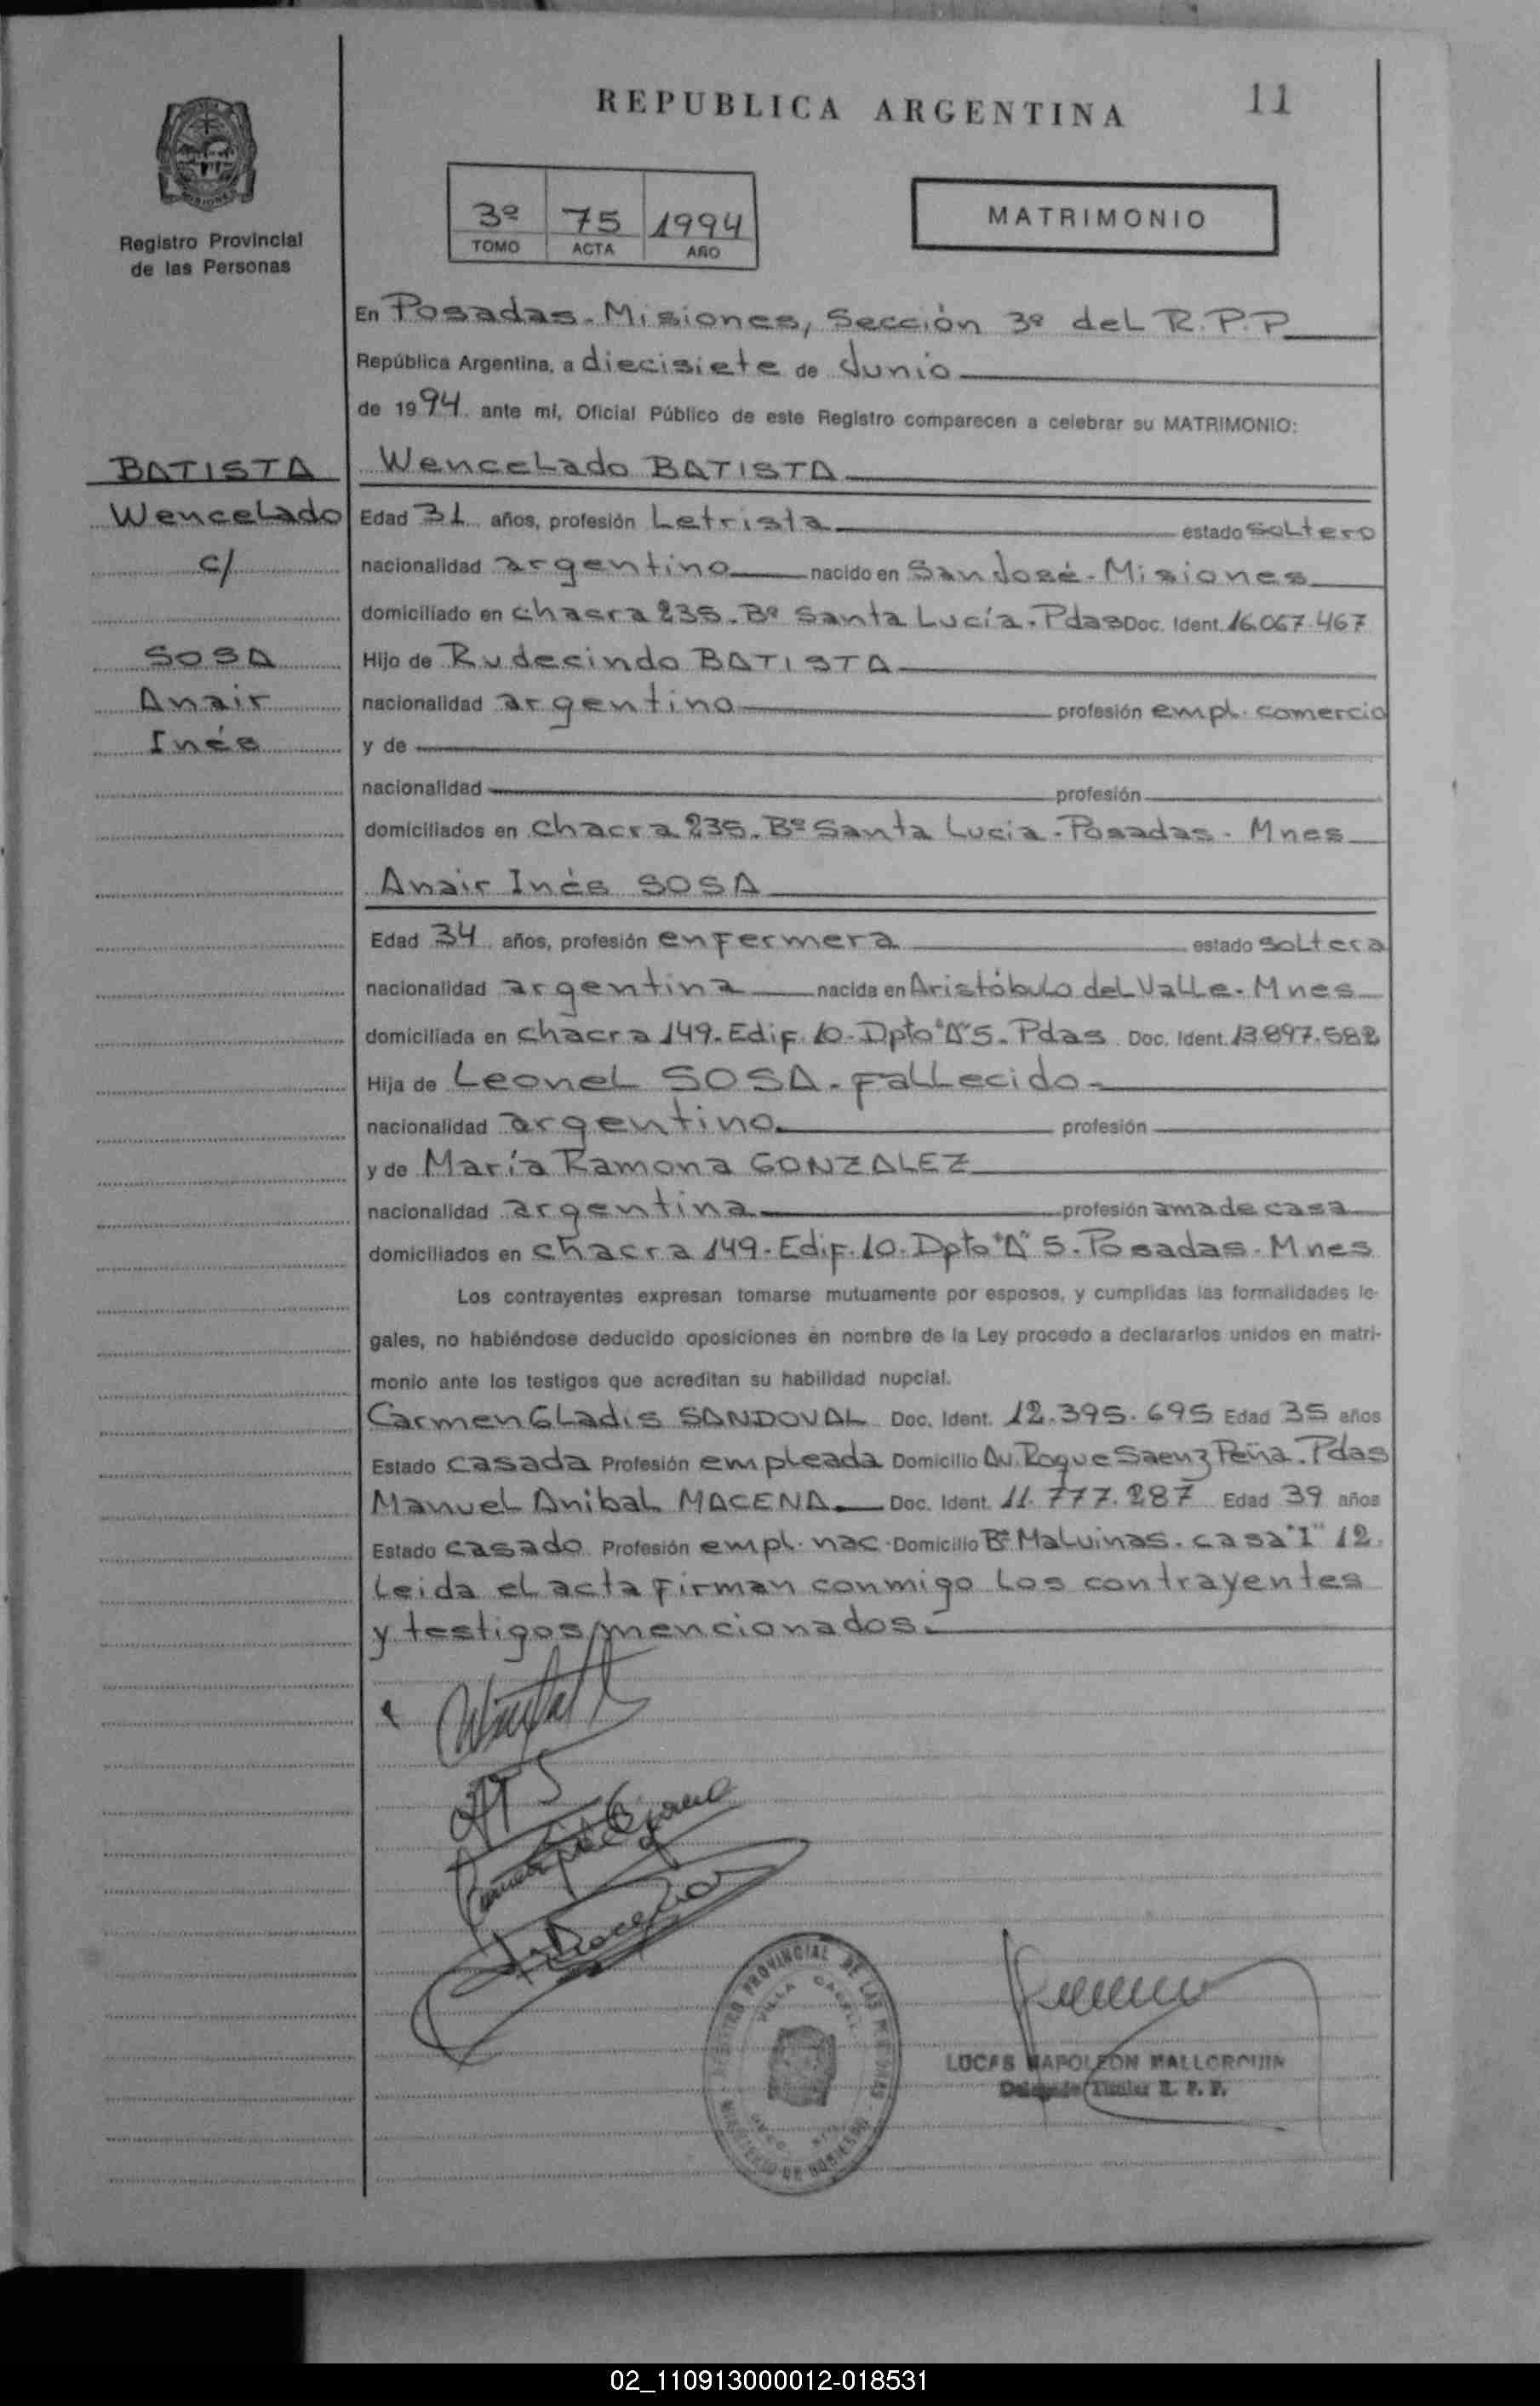 REPUBLICA ARGENTINA 11
MISIONES
Registro Provincial
de las Personas
3º 75 1994
TOMO ACTA AÑO
MATRIMONIO
En Posadas - Misiones, Sección 3º del R.P.P
República Argentina, a diecisiete de Junio
de 1994 ante mí, Oficial Público de este Registro comparecen a celebrar su MATRIMONIO:
BATISTA
Wencelado
c/
SOSA
Anair
Inés
Wencelado BATISTA
Edad 31 años, profesión Letrista estado soltero
nacionalidad argentino nacido en San José - Misiones
domiciliado en chacra 235. Bº Santa Lucía. Pdas Doc. Ident. 16.067.467
Hijo de Rudecindo BATISTA
nacionalidad argentino profesión empl. comercio
y de
nacionalidad profesión
domiciliados en chacra 235. Bº Santa Lucia - Posadas - Mnes
Anair Inés SOSA
Edad 34 años, profesión enfermera estado soltera
nacionalidad argentina nacida en Aristóbulo del Valle - Mnes
domiciliada en chacra 149. Edif. 10. Dpto "A" 5. Pdas Doc. Ident. 13.897.582
Hija de Leonel SOSA - fallecido -
nacionalidad argentino profesión
y de María Ramona GONZALEZ
nacionalidad argentina profesión ama de casa
domiciliados en chacra 149. Edif. 10. Dpto "A" 5. Posadas. Mnes
Los contrayentes expresan tomarse mutuamente por esposos, y cumplidas las formalidades le-
gales, no habiéndose deducido oposiciones en nombre de la Ley procedo a declararlos unidos en matri-
monio ante los testigos que acreditan su habilidad nupcial.
Carmen Gladis SANDOVAL Doc. Ident. 12.395.695 Edad 35 años
Estado casada Profesión empleada Domicilio Av. Roque Saenz Peña. Pdas
Manuel Anibal MACENA Doc. Ident. 11.777.287 Edad 39 años
Estado casado Profesión empl. nac. Domicilio Bº Malvinas. casa "I" 12.
Leida el acta firman conmigo los contrayentes
y testigos mencionados.-
REGISTRO PROVINCIAL DE LAS PERSONAS
VILLA
MINISTERIO DE GOBIERNO
LUCAS NAPOLEON MALLORQUIN
Delegado Titular R. P. P.
02_110913000012-018531